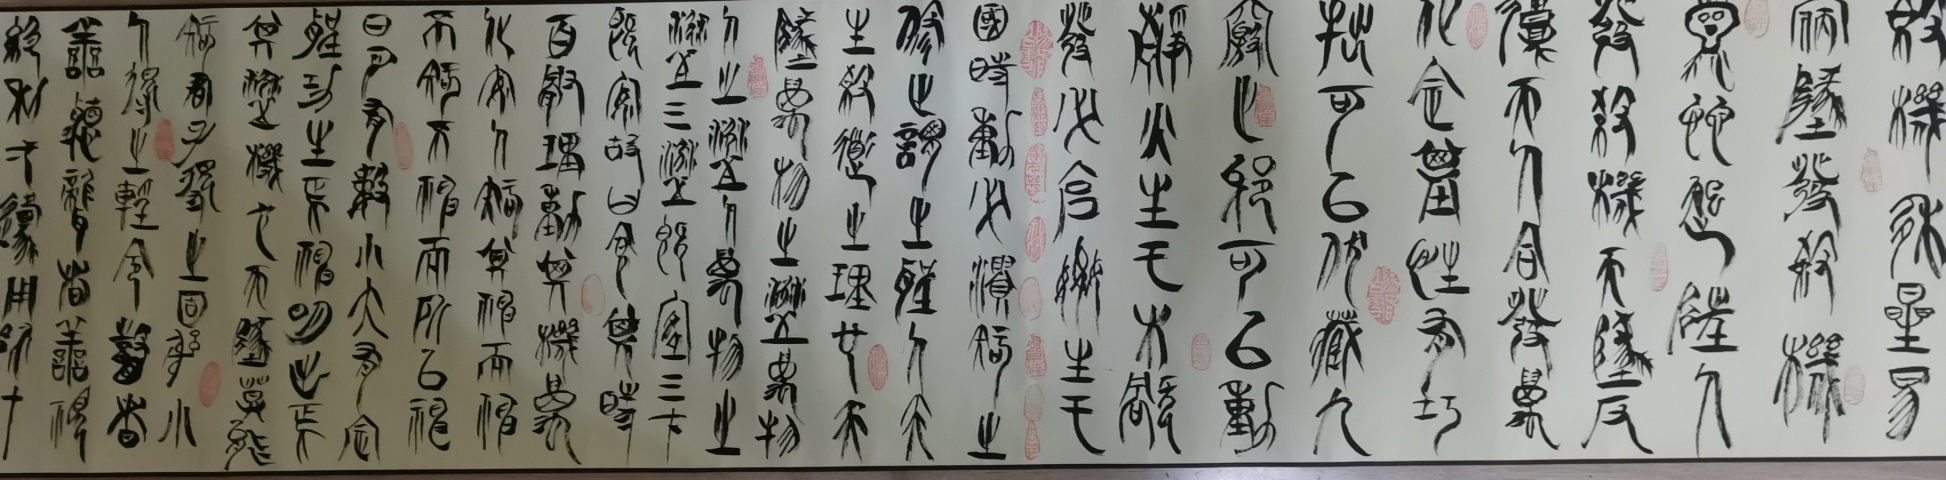 殺機移星易
宿地發殺機
龍蛇起陸人
發殺機天地反
覆天人合發萬
化定基性有巧
拙可以伏藏九
竅之邪可以動
靜火生于木禍
發必克姦生于
國時動必潰知之
修之謂之聖人天
生殺道之理也天
地萬物之盜萬物
人之盜人萬物之
盜三盜既宜三才
既安故曰食其時
百骸理動其機萬
化安人知其神而神
不知不神而所以神
日月有數小大有定
聖功生焉神明出焉
其盜機也天地莫能
知君子得之固躬小
人得之輕命瞽者
善聽聾者善視
絕利一源用師十